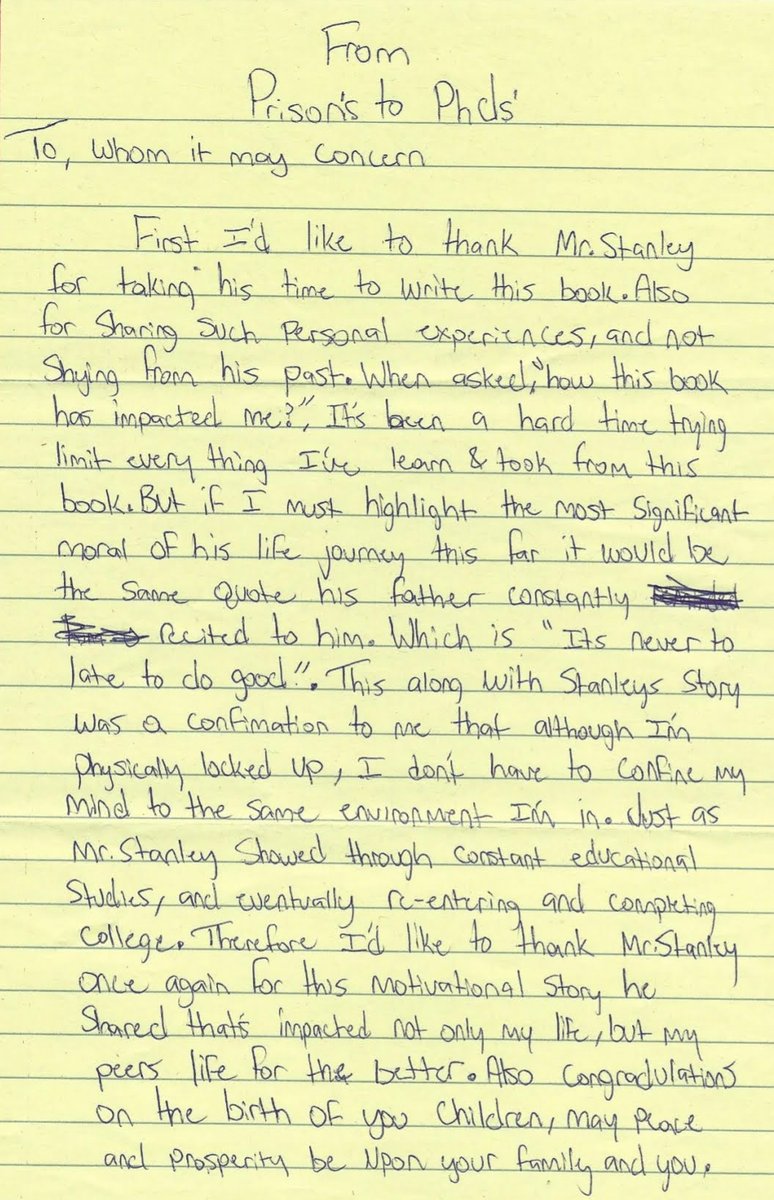 From
Prison's to Phds'
To, Whom it may concern
First I'd like to thank Mr. Stanley
for taking his time to write this book. Also
for sharing such personal experiences, and not
shying from his past. When asked, "how this book
has impacted me?", It's been a hard time trying
limit every thing I've learn & took from this
book. But if I must highlight the most significant
moral of his life journey this far it would be
the same quote his father constantly
recited to him. Which is "Its never to
late to do good". This along with Stanleys story
was a confimation to me that although I'm
physically locked up, I don't have to confine my
mind to the same environment I'm in. Just as
Mr. Stanley showed through constant educational
studies, and eventually re-entering and completing
college. Therefore I'd like to thank Mr. Stanley
once again for this motivational story he
shared that's impacted not only my life, but my
peers life for the better. Also congradulations
on the birth of you children, may peace
and prosperity be upon your family and you.